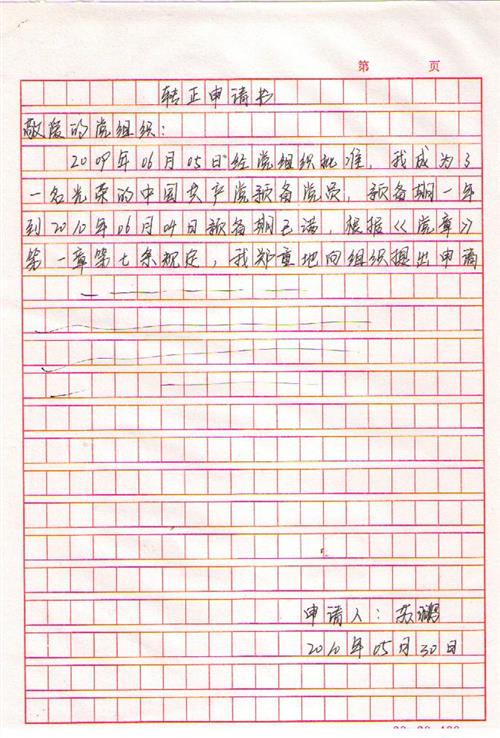 第 页
转正申请书
敬爱的党组织：
2009年06月05日经党组织批准，我成为了
一名光荣的中国共产党预备党员，预备期一年
到2010年06月04日预备期已满，根据《党章》
第一章第七条规定，我郑重地向组织提出申请
申请人：苏
2010年05月30日